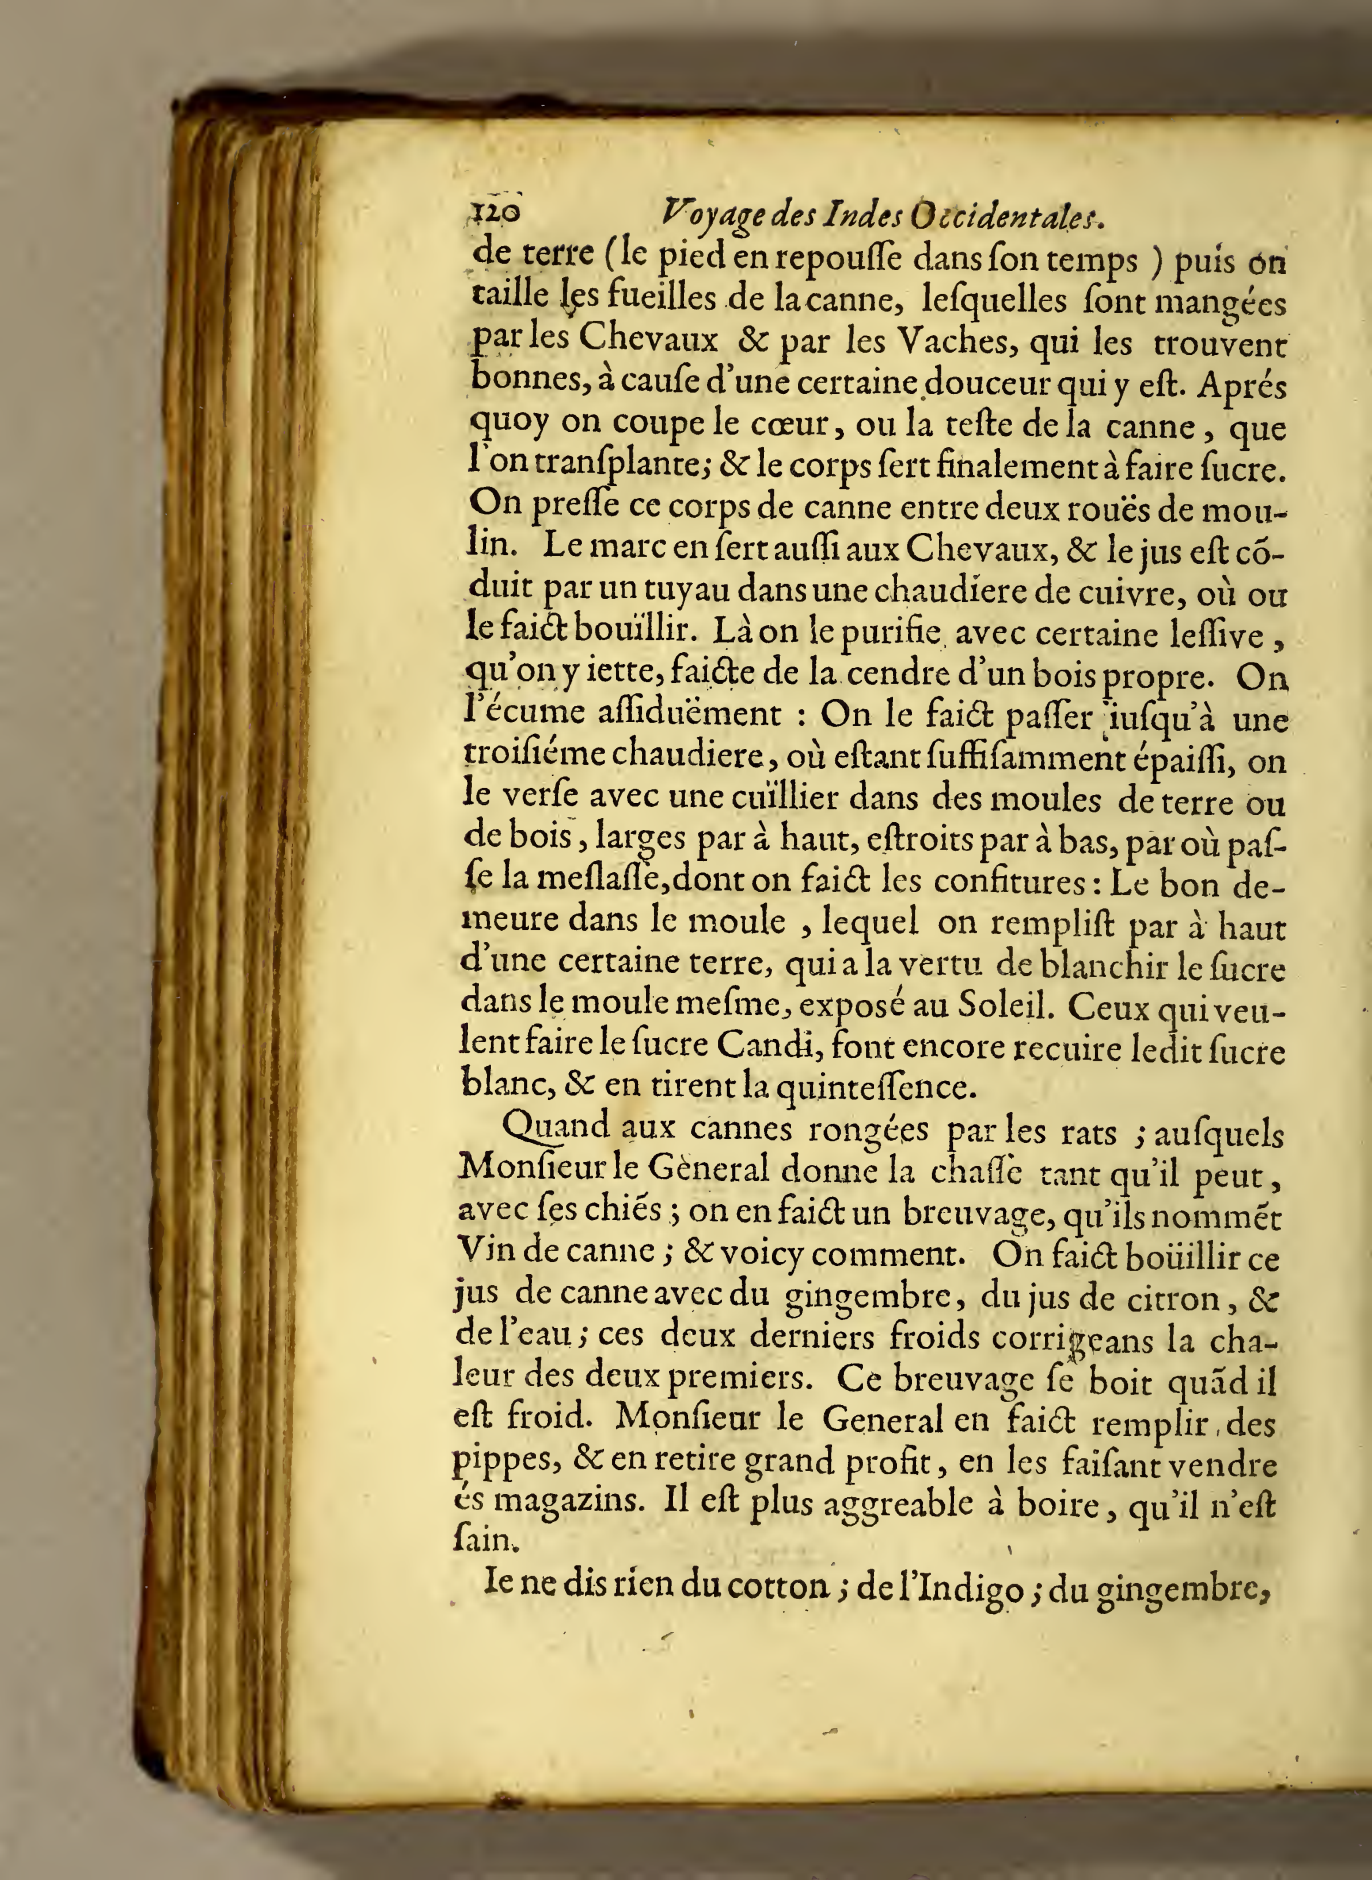 120 Voyage des Indes Occidentales.
de terre (le pied en repouſſe dans ſon temps ) puis on
taille les fueilles de la canne, leſquelles ſont mangées
par les Chevaux & par les Vaches, qui les trouvent
bonnes, à cauſe d'une certaine douceur qui y eſt. Aprés
quoy on coupe le cœur, ou la teſte de la canne, que
l'on tranſplante; & le corps ſert finalement à faire ſucre.
On preſſe ce corps de canne entre deux rouës de mou-
lin. Le marc en ſert auſſi aux Chevaux, & le jus eſt cõ-
duit par un tuyau dans une chaudiere de cuivre, où ou
le faict bouïllir. Là on le purifie avec certaine leſſive,
qu'on y iette, faicte de la cendre d'un bois propre. On
l'écume aſſiduëment : On le faict paſſer iuſqu'à une
troiſiéme chaudiere, où eſtant ſuffiſamment épaiſſi, on
le verſe avec une cuïllier dans des moules de terre ou
de bois, larges par à haut, eſtroits par à bas, par où paſ-
ſe la meſlaſſe, dont on faict les confitures : Le bon de-
meure dans le moule, lequel on rempliſt par à haut
d'une certaine terre, qui a la vertu de blanchir le ſucre
dans le moule meſme, exposé au Soleil. Ceux qui veu-
lent faire le ſucre Candi, font encore recuire ledit ſucre
blanc, & en tirent la quinteſſence.
Quand aux cannes rongées par les rats ; auſquels
Monſieur le Gèneral donne la chaſſe tant qu'il peut,
avec ſes chiẽs ; on en faict un breuvage, qu'ils nommẽt
Vin de canne ; & voicy comment. On faict boüillir ce
jus de canne avec du gingembre, du jus de citron, &
de l'eau ; ces deux derniers froids corrigeans la cha-
leur des deux premiers. Ce breuvage ſe boit quãd il
eſt froid. Monſieur le General en faict remplir des
pippes, & en retire grand profit, en les faiſant vendre
és magazins. Il eſt plus aggreable à boire, qu'il n'eſt
ſain.
Ie ne dis rien du cotton ; de l'Indigo ; du gingembre,